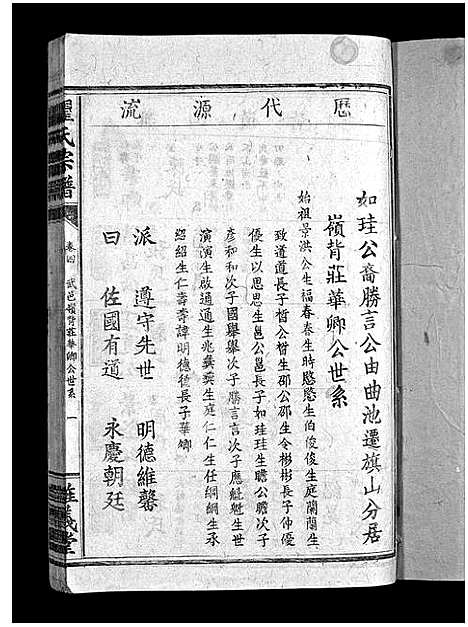 歷代源流
如珪公裔勝言公由曲池遷旗山分居
嶺背莊華卿公世系
始祖景洪公生福春春生時愍愍生伯俊俊生庭蘭蘭生
致道道長子晳公晳生邵公邵生令彬彬長子仲優
優生以思思生邑公邕長子如珪珪生瞻公瞻次子
彥和和次子國舉舉次子勝言言次子應魁魁生世
演演生啟通通生兆彝彝生庭仁仁生任綱綱生承
紹紹生仁壽壽諱明德德長子華卿
派 遵守先世 明德維馨
曰 佐國有道 永慶朝廷
氏宗譜
卷四
武邑嶺背莊華卿公世系
一
義堂